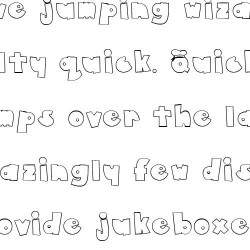 ve jumping wiza
lty quick. Quick
mps over the la
azingly few dis
ovide jukeboxe